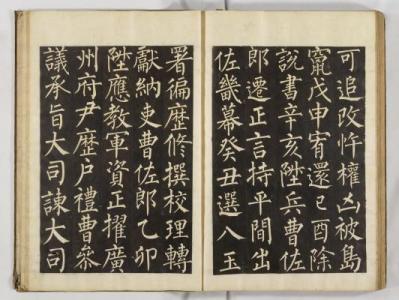 可追改忤權凶被島
竄戊申宥還己酉除
說書辛亥陞兵曹佐
郎遷正言持平間出
佐畿幕癸丑選入玉
署徧歷修撰校理轉
獻納吏曹佐郎乙卯
陞應教軍資正擢廣
州府尹歷戶禮曹參
議承旨大司諫大司